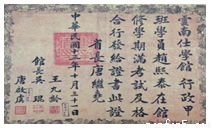 雲南仕學館行政甲
班學員趙熙泰在館
修學期滿考試及格
合行發給證書此證
省長唐繼堯
館長吳琨
王九齡
唐啟虞
中華民國十三年十月三十一日